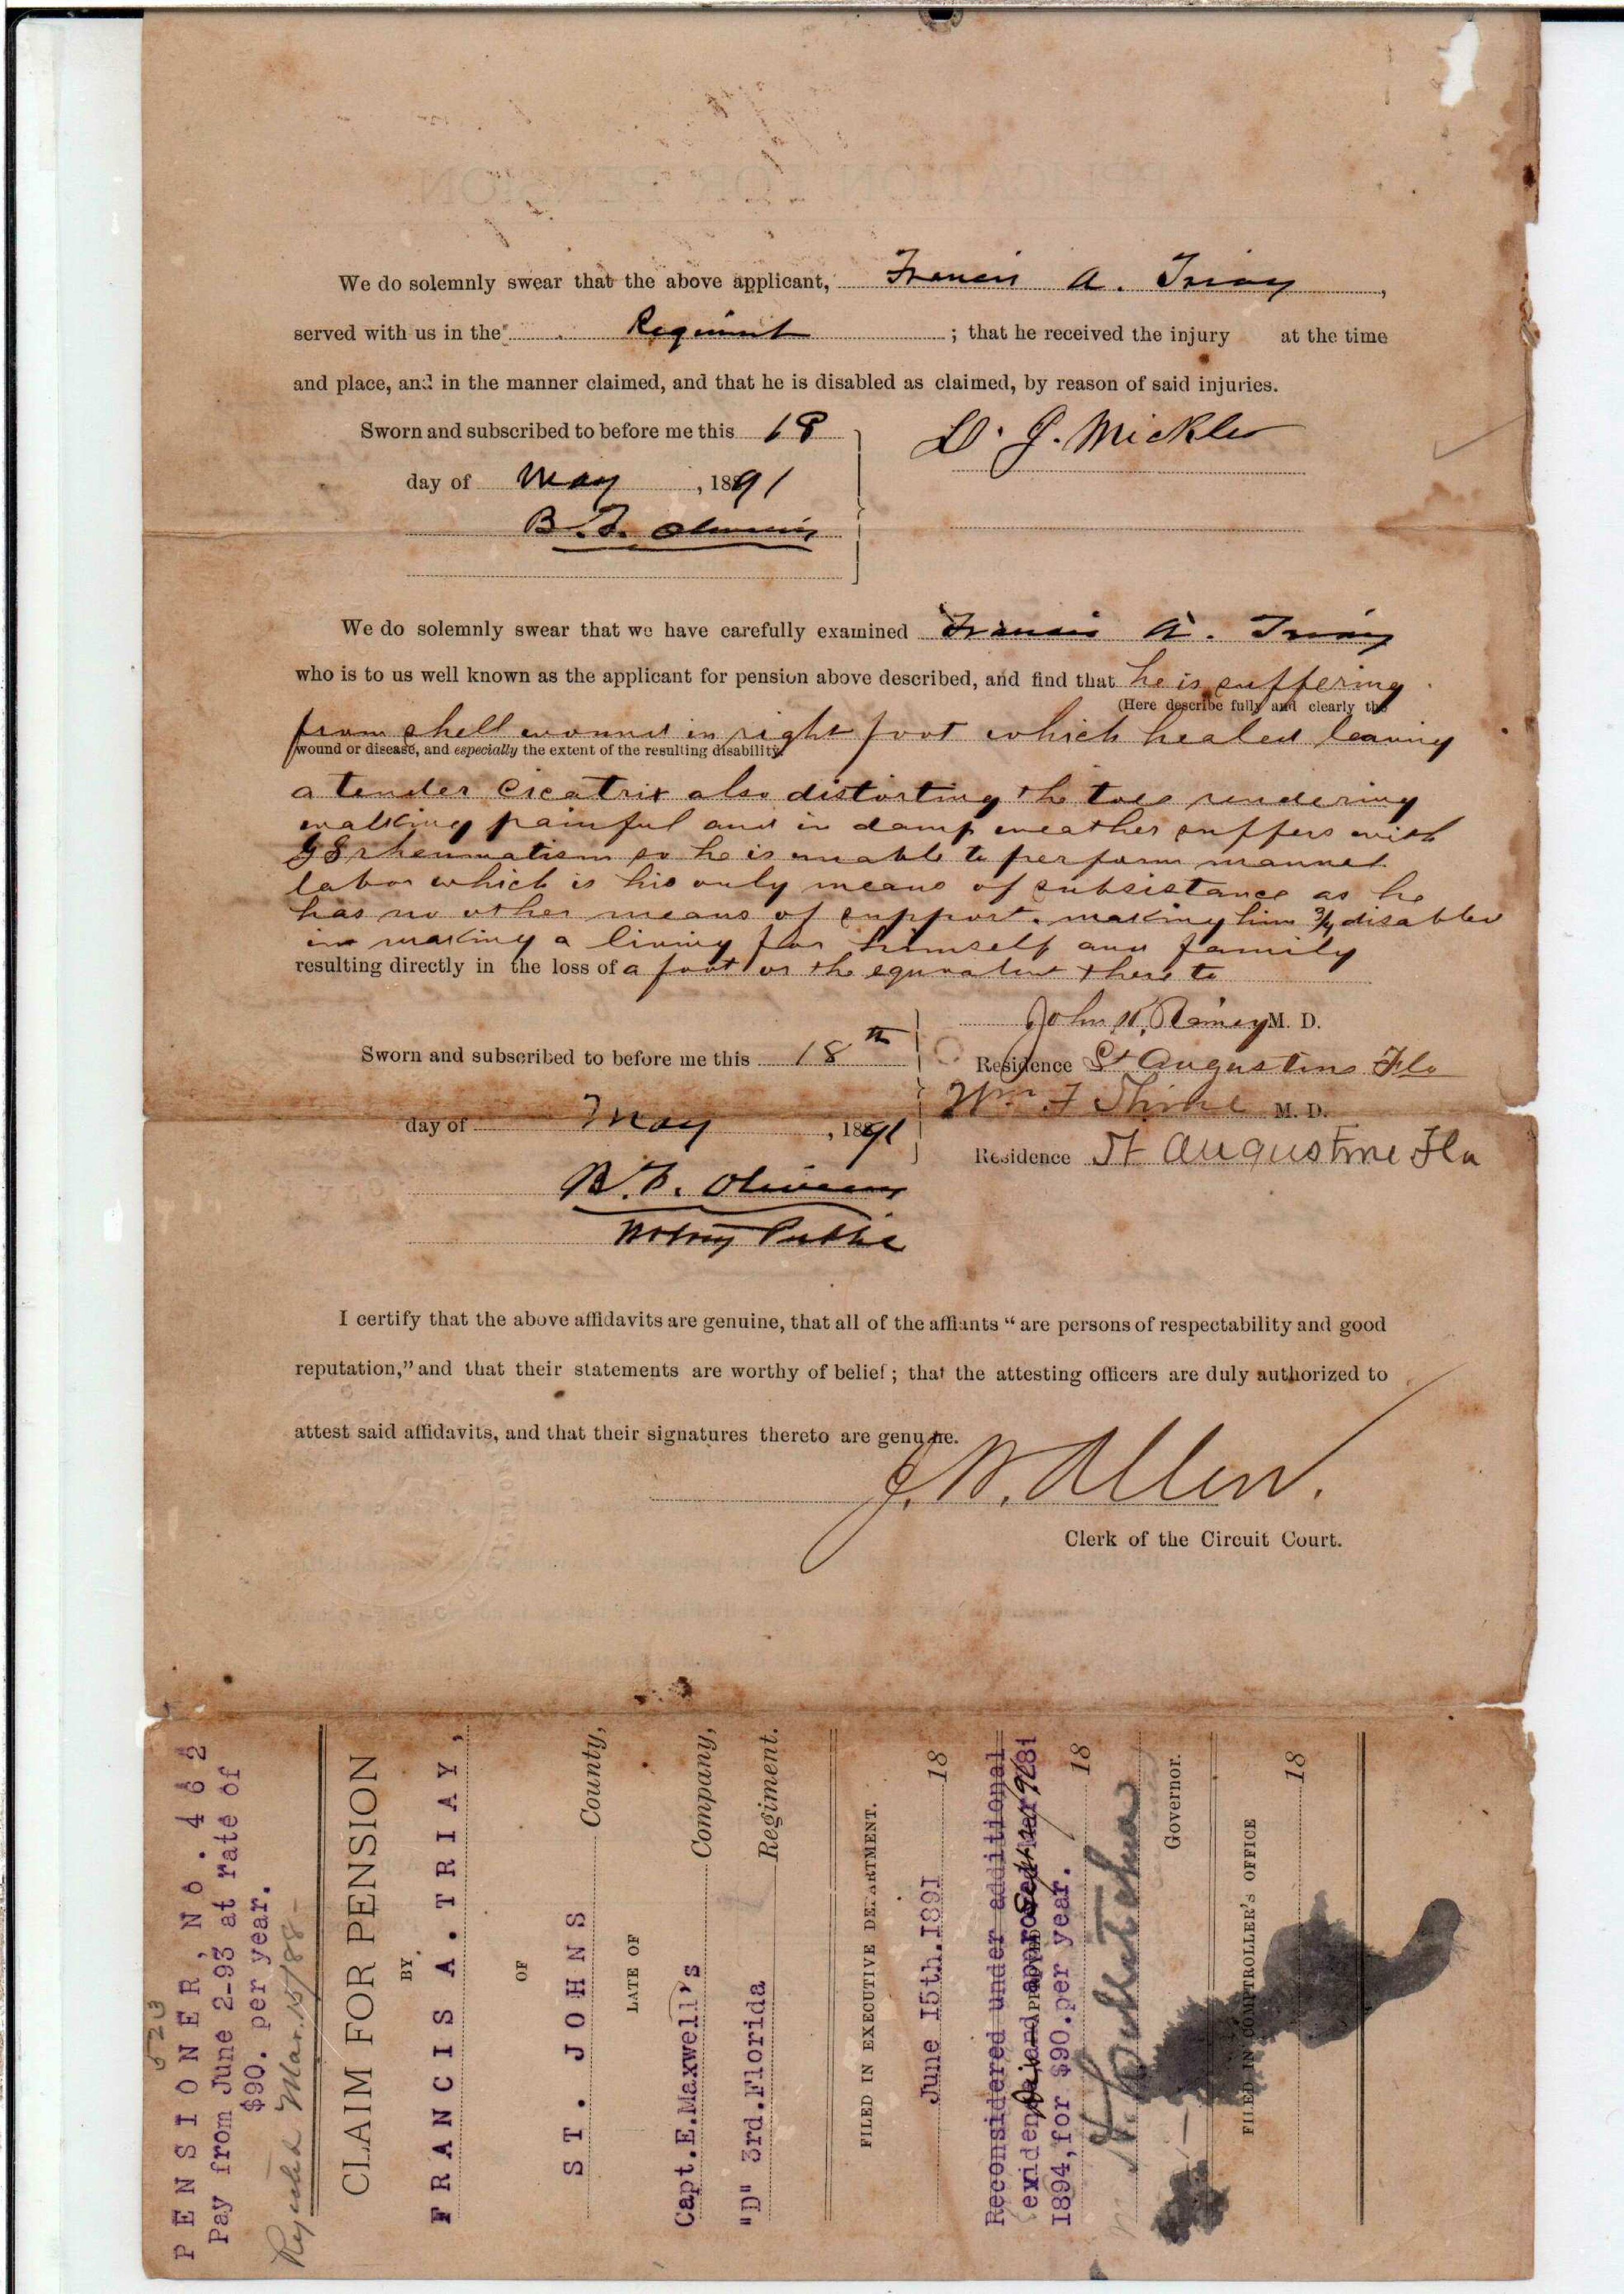 We do solemnly swear that the above applicant, Francis A. Triay,
served with us in the Regiment ; that he received the injury at the time
and place, and in the manner claimed, and that he is disabled as claimed, by reason of said injuries.
Sworn and subscribed to before me this 18
D. J. Mickler
day of May, 1891
B. F. Oliveros
We do solemnly swear that we have carefully examined Francis A. Triay
who is to us well known as the applicant for pension above described, and find that he is suffering
(Here describe fully and clearly the
from shell wound in right foot which healed leaving
wound or disease, and especially the extent of the resulting disability.
a tender Cicatrix also distorting the toes rendering
walking painful and in damp weather suffers with
rheumatism so he is unable to perform manuel
labor which is his only means of subsistance as he
has no other means of support. making him 3/4 disabled
in making a living for himself and family
resulting directly in the loss of a foot or the equivalent there to
John K. Rainey M. D.
Sworn and subscribed to before me this 18th
Residence St Augustine Fla
Wm F Shine M. D.
day of May, 1891
Residence St Augustine Fla
B. F. Oliveros
Notary Public
I certify that the above affidavits are genuine, that all of the affiants "are persons of respectability and good
reputation," and that their statements are worthy of belief; that the attesting officers are duly authorized to
attest said affidavits, and that their signatures thereto are genuine.
J. W. Allen.
Clerk of the Circuit Court.
PENSIONER, No. 462
Pay from June 2-93 at rate of
$90. per year.
Rejected Mar. 15/88-
CLAIM FOR PENSION
BY
FRANCIS A. TRIAY,
OF
ST. JOHNS County,
LATE OF
Capt. E. Maxwell's Company,
"D" 3rd. Florida Regiment.
FILED IN EXECUTIVE DEPARTMENT.
June 15th. 1891 18
Reconsidered under additional
evidence and approved
1894, for $90. per year. 18
Governor.
FILED IN COMPTROLLER'S OFFICE
18